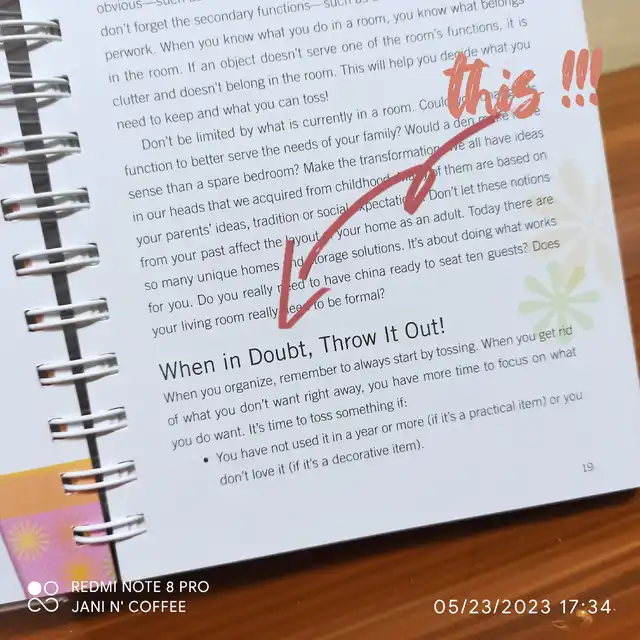 obvious—such as
don't forget the secondary functions—such as
perwork. When you know what you do in a room, you know what belongs
in the room. If an object doesn't serve one of the room's functions, it is
clutter and doesn't belong in the room. This will help you decide what you
need to keep and what you can toss!
this !!!
Don't be limited by what is currently in a room. Could
function to better serve the needs of your family? Would a den make more
sense than a spare bedroom? Make the transformation. We all have ideas
in our heads that we acquired from childhood. of them are based on
your parents' ideas, tradition or social expectations. Don't let these notions
from your past affect the layout of your home as an adult. Today there are
so many unique homes and storage solutions. It's about doing what works
for you. Do you really need to have china ready to seat ten guests? Does
your living room really need to be formal?
When in Doubt, Throw It Out!
When you organize, remember to always start by tossing. When you get rid
of what you don't want right away, you have more time to focus on what
you do want. It's time to toss something if:
• You have not used it in a year or more (if it's a practical item) or you
don't love it (if it's a decorative item).
19
REDMI NOTE 8 PRO
JANI N' COFFEE
05/23/2023 17:34